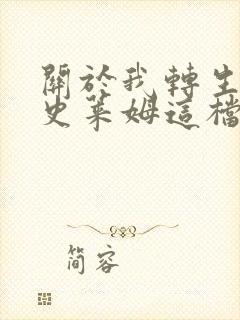 關於我轉生
史萊姆這檔
简容